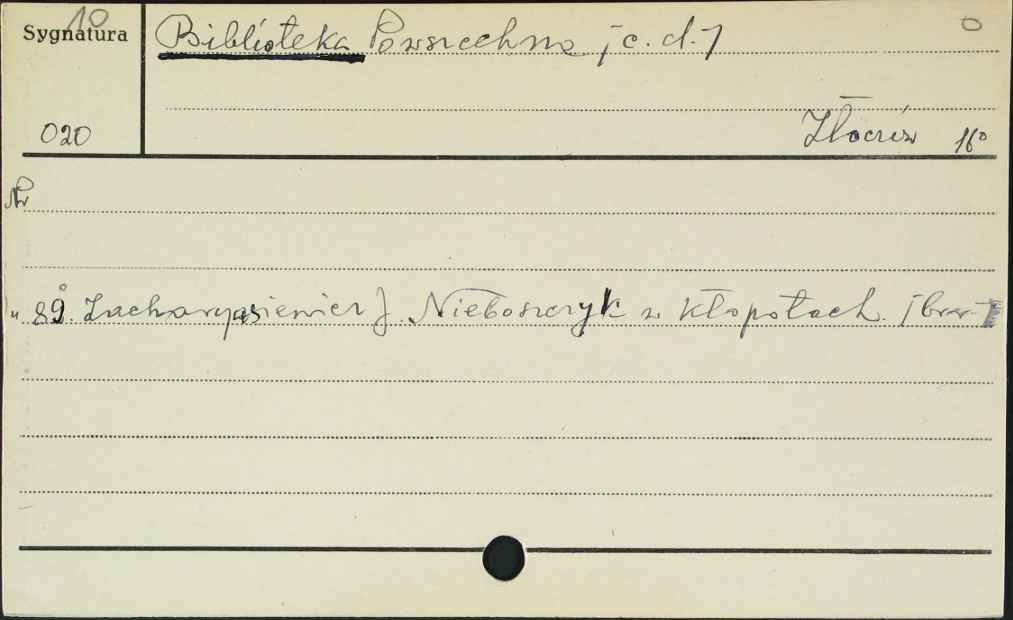 10
Sygnatura
Biblioteka Powszechna [c. d.]
0
020
Złoczów 16°
Nr
" 89. Zacharyasiewicz J. Nieboszczyk w kłopotach. [brw.]